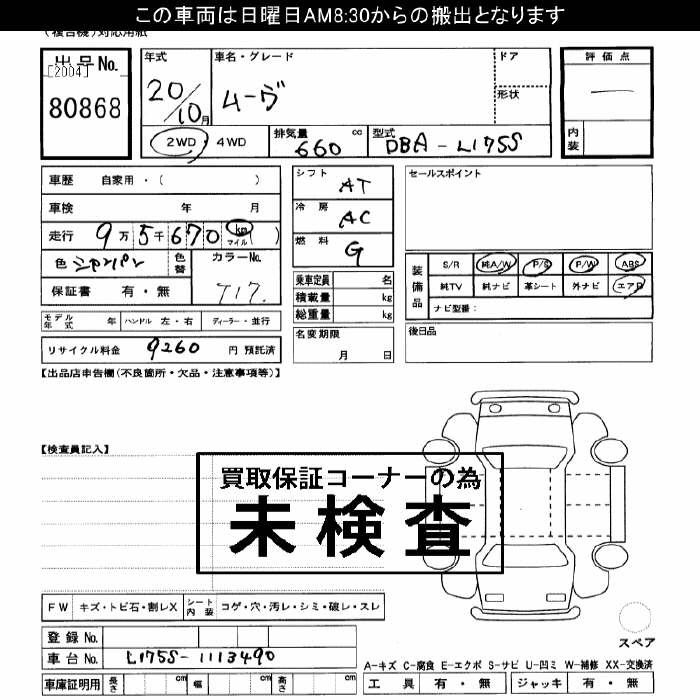 この車両は日曜日AM8:30からの搬出となります
(複合機)対応用紙
出品No.
[2004]
80868
年式
20/10月
車名・グレード
ムーヴ
ドア
形状
評価点
―
内装
2WD・4WD
排気量 660 cc
型式 DBA-L175S
車歴 自家用・( )
車検 年 月
走行 9万5千670 km マイル ( )
色 シャンパン 色替
カラーNo.
T17.
保証書 有・無
シフト AT
冷房 AC
燃料 G
乗車定員 名
積載量 kg
総重量 kg
名変期限
月 日
セールスポイント
装備品
S/R 純A/W P/S P/W ABS
純TV 純ナビ 革シート 外ナビ エアB
ナビ型番:
後日品
モデル年式 年 ハンドル 左・右 ディーラー・並行
リサイクル料金 9260 円 預託済
【出品店申告欄(不良箇所・欠品・注意事項等)】
【検査員記入】
買取保証コーナーの為
未検査
FW キズ・トビ石・割レX シート内装 コゲ・穴・汚レ・シミ・破レ・スレ
スペア
登録No.
車台No. L175S-1113490
車庫証明用 長さ cm 幅 cm 高さ cm
A-キズ C-腐食 E-エクボ S-サビ U-凹ミ W-補修 XX-交換済
工具 有・無 ジャッキ 有・無